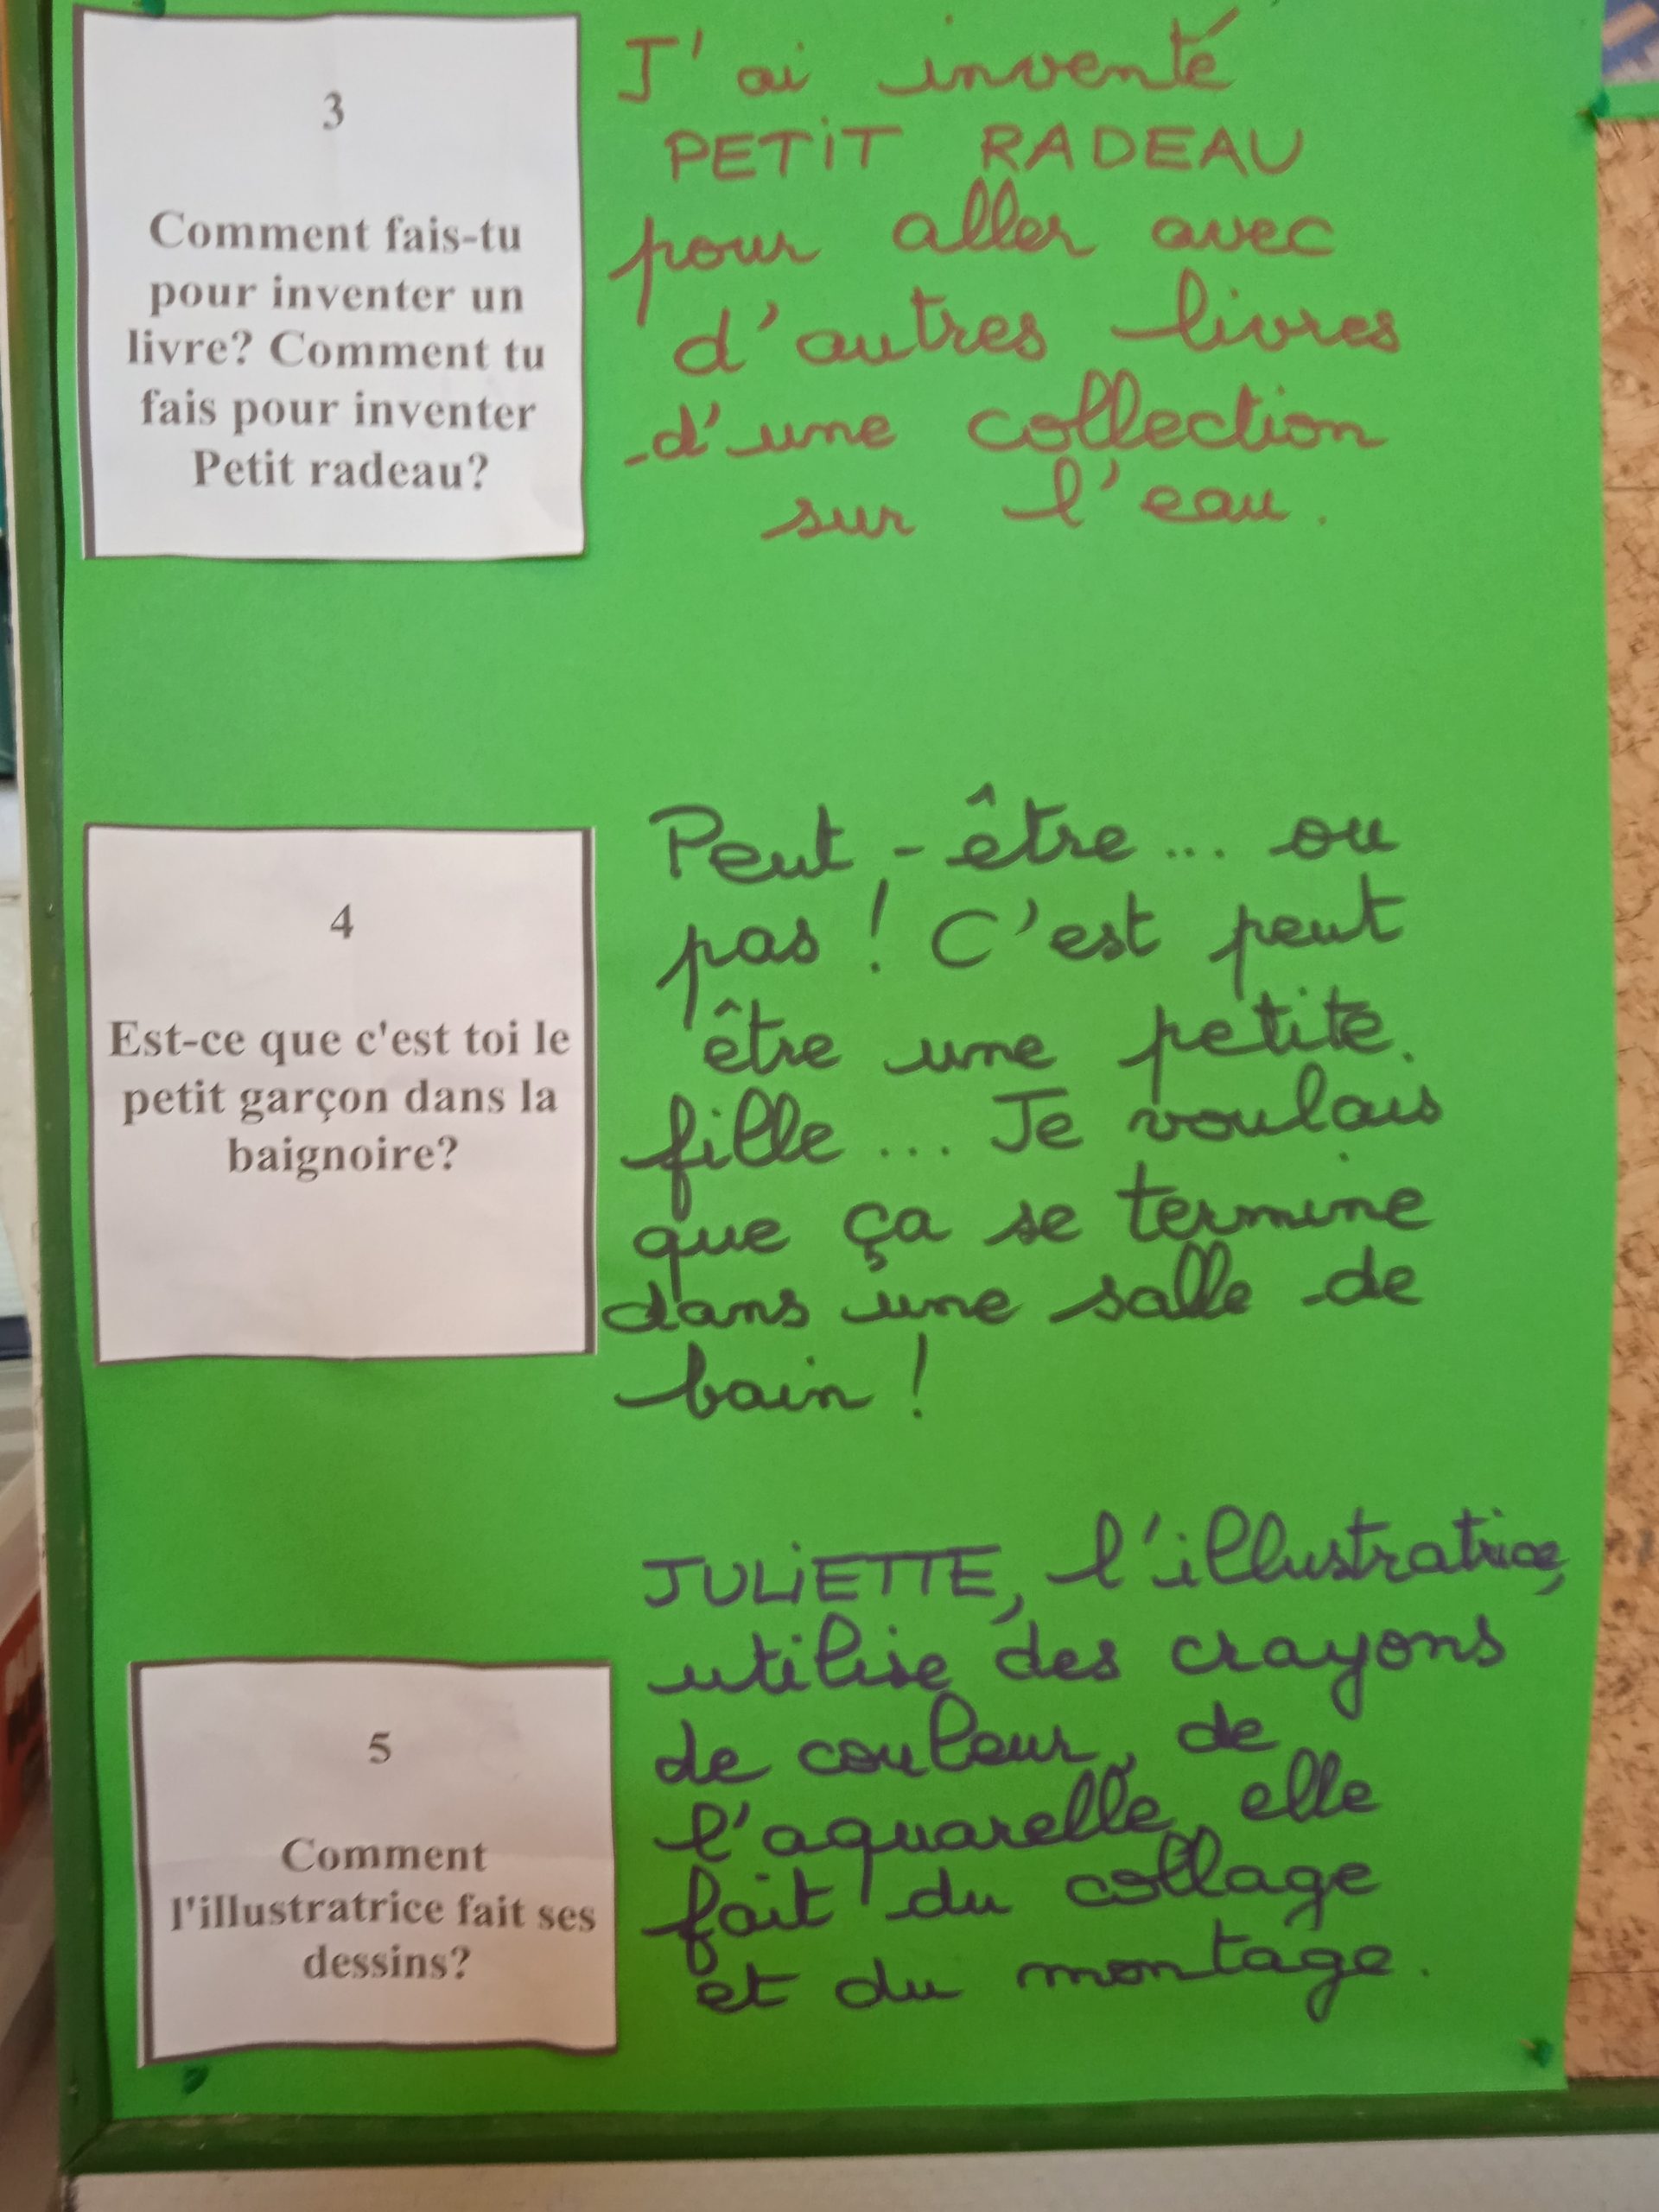 3
Comment fais-tu
pour inventer un
livre? Comment tu
fais pour inventer
Petit radeau?
J'ai inventé
PETIT RADEAU
pour aller avec
d'autres livres
d'une collection
sur l'eau.
4
Est-ce que c'est toi le
petit garçon dans la
baignoire?
Peut-être... ou
pas! C'est peut
être une petite
fille... Je voulais
que ça se termine
dans une salle de
bain!
5
Comment
l'illustratrice fait ses
dessins?
JULIETTE, l'illustratrice,
utilise des crayons
de couleur, de
l'aquarelle, elle
fait du collage
et du montage.